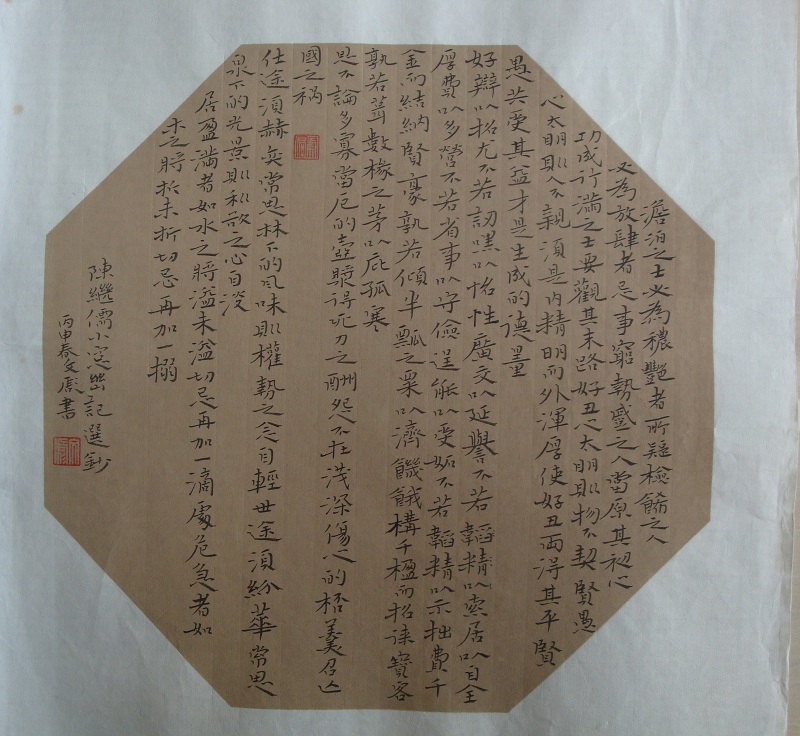 澹泊之士必為穠艷者所疑檢飾之人
必為放肆者忌事窮勢蹙之人當原其初心
功成行滿之士要觀其末路好丑心太明則物不契賢愚
心太明則人不親須是内精明而外渾厚使好丑兩得其平賢
愚共受其益才是生成的德量
好辯以招尤不若訒嘿以怡性廣交以延譽不若索居以自全
厚費以多營不若省事以守儉逞能以受妬不若韜精以示拙費千
金而結納賢豪孰若傾半瓢之粟以濟饑餓構千楹而招徠賓客
孰若葺數椽之茅以庇孤寒
恩不論多寡當厄的壺漿得死力之酬怨不在淺深傷心的桮羹召亡
國之禍
仕途須赫奕常思林下的風味則權勢之念自輕世途須紛華常思
泉下的光景則利欲之心自淡
居盈滿者如水之將溢未溢切忌再加一滴處危急者如
木之將折未折切忌再加一搦
陳繼儒小窗幽記選鈔
丙申春文彪書